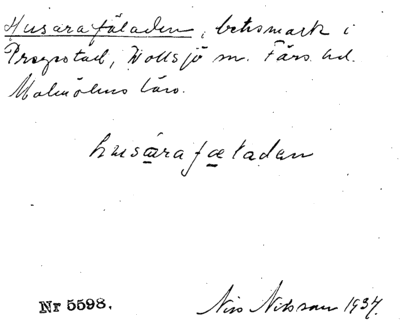 Husarafäladen, betesmark i
Prepstad, Vollsjö m. Färs hd.
Malmöhus län.
husarafœladen
Nr 5598.
Nils Nilsson 1937.